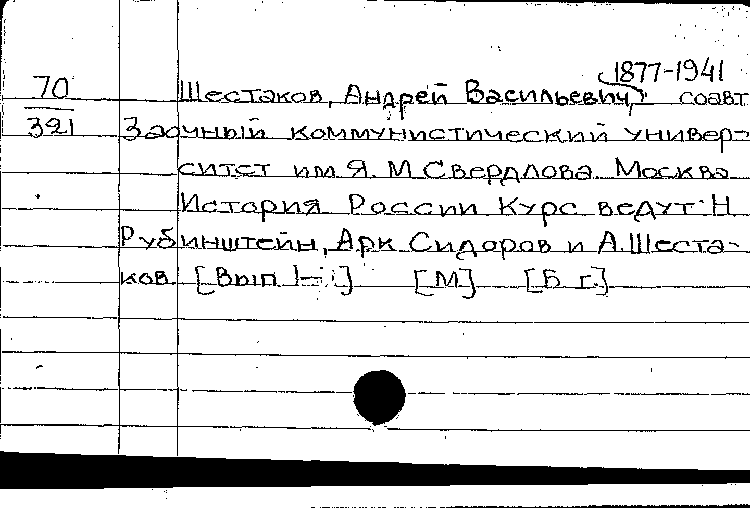 1877-1941
70 Шестаков, Андрей Васильевич, соавт
391 Заочный коммунистический универ-
ситет им. Я. М. Свердлова. Москва
История России Курс ведут: Н
Рубинштейн, Арк Сидоров и А. Шеста-
ков. [Вып [М] [Б г.]